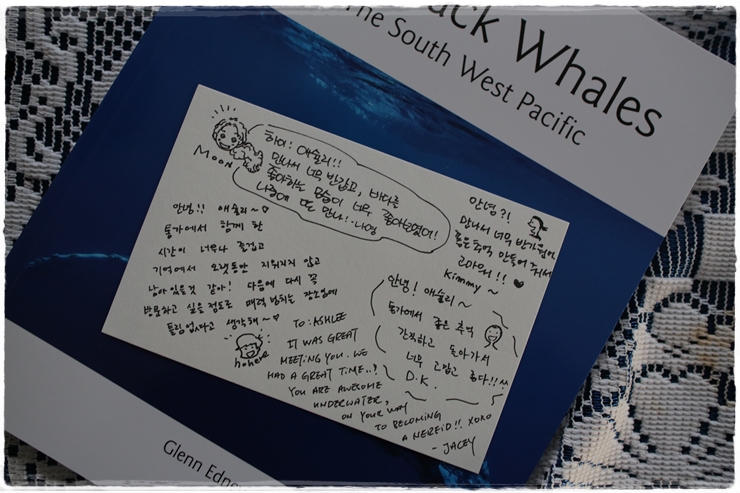 ack Whales
The South West Pacific
하이! 애슐리!!
만나서 너무 반갑고, 바다를
좋아하는 모습이 너무 좋아보였어!
나중에 또 만나!
Moon
안녕!! 애슐리~♡
통가에서 함께 한
시간이 너무나 즐겁고
기억에서 오랫동안 지워지지 않고
남아있을것 같아! 다음에 다시 꼭
방문하고 싶을 정도로 매력 넘치는 장소임에
틀림없다고 생각해~♡
hohere
안녕?!
만나서 너무 반가웠어
좋은 추억 만들어 줘서
고마워!! ♥
Kimmy ~
안녕! 애슐리~
통가에서 좋은 추억
간직하고 돌아가서
너무 고맙고 좋다!! ^^
D.K.
TO: ASHLEE
IT WAS GREAT
MEETING YOU. WE
HAD A GREAT TIME..?
YOU ARE AWESOME
UNDERWATER,
ON YOUR WAY
TO BECOMING
A NEREID!! XOXO
- JACEY
Glenn Edne